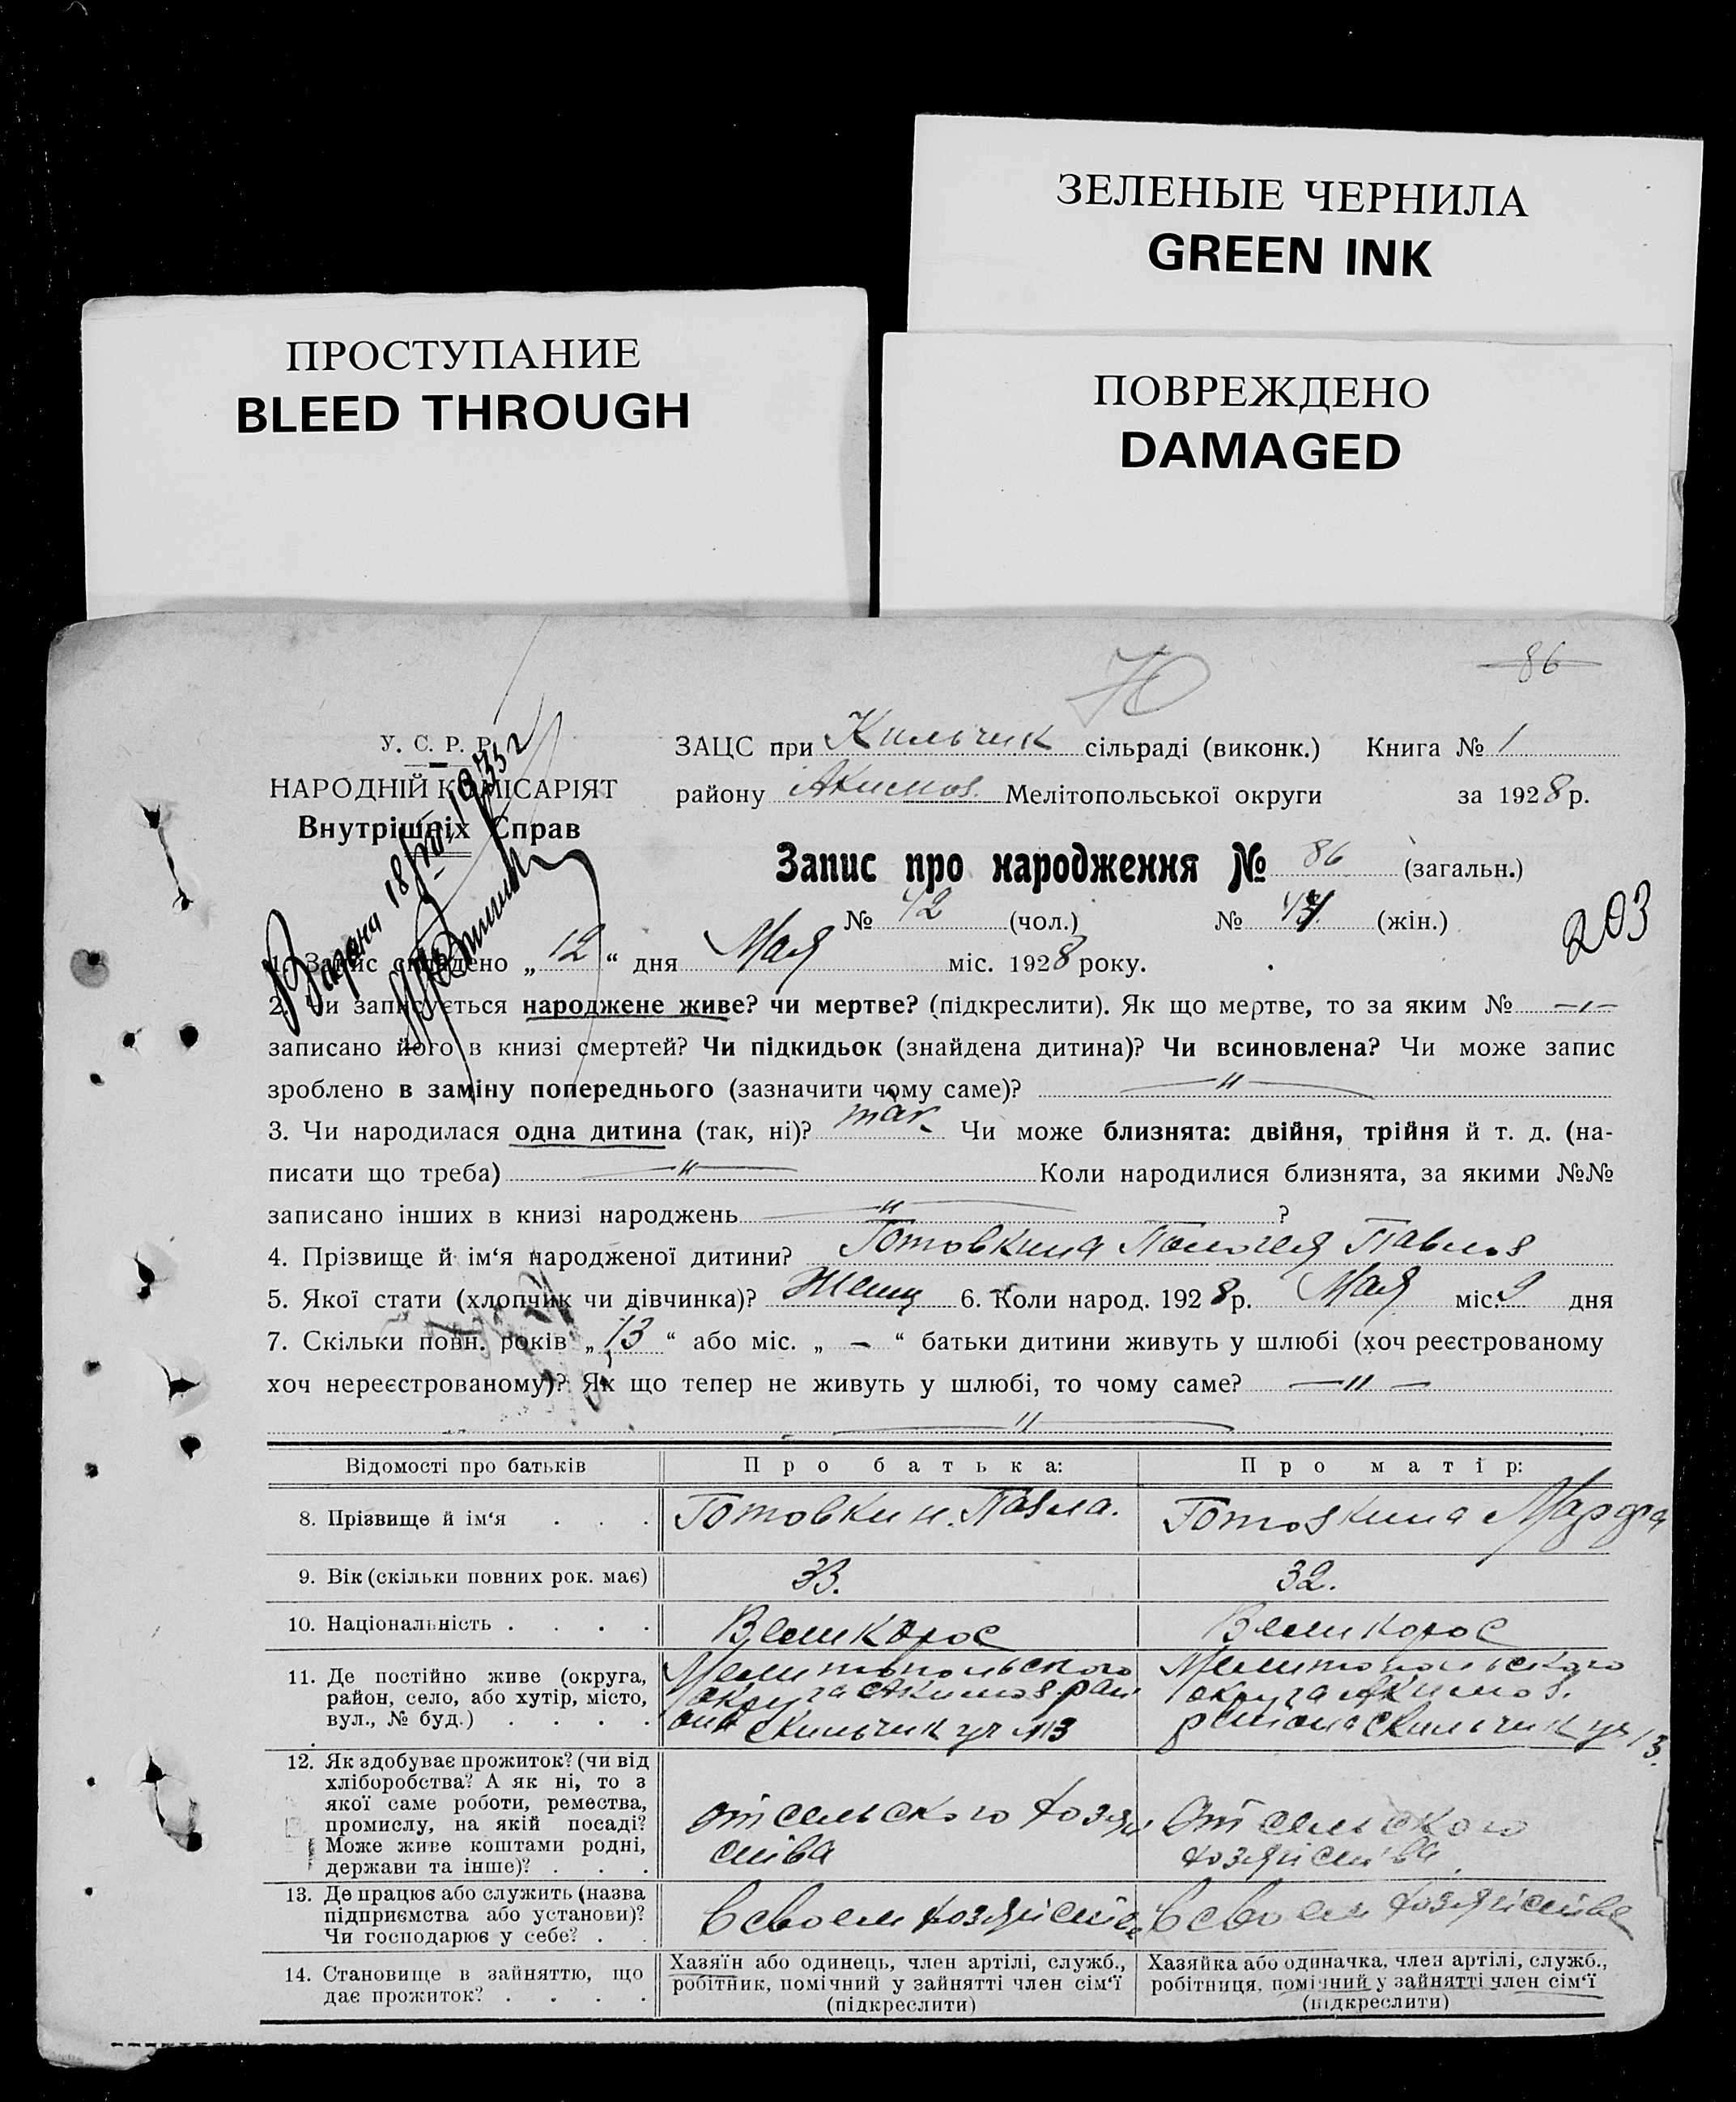 ЗЕЛЕНЫЕ ЧЕРНИЛА
GREEN INK
ПРОСТУПАНИЕ
BLEED THROUGH
ПОВРЕЖДЕНО
DAMAGED
86
У. С. Р. Р.
НАРОДНІЙ КОМІСАРІЯТ
Внутрішніх Справ
ЗАЦС при Кильчик сільраді (виконк.) Книга № 1
району Акимов. Мелітопольської округи за 1928 р.
Запис про народження № 86 (загальн.)
№ 42 (чол.) № (жін.)
203
1. Запис складено „12“ дня Мая міс. 1928 року.
2. Чи записується народжене живе? чи мертве? (підкреслити). Як що мертве, то за яким № —〃—
записано його в книзі смертей? Чи підкидьок (знайдена дитина)? Чи всиновлена? Чи може запис
зроблено в заміну попереднього (зазначити чому саме)? —〃—
3. Чи народилася одна дитина (так, ні)? так Чи може близнята: двійня, трійня й т. д. (на-
писати що треба) —〃— Коли народилися близнята, за якими №№
записано інших в книзі народжень —〃— ?
4. Прізвище й ім‘я народженої дитини? Готовкина Павлов
5. Якої стати (хлопчик чи дівчинка)? Женщ 6. Коли народ. 1928 р. Мая міс. 9 дня
7. Скільки повн. років „13“ або міс. „—“ батьки дитини живуть у шлюбі (хоч реєстрованому
хоч нереєстрованому)? Як що тепер не живуть у шлюбі, то чому саме? —〃—
—〃—
Відомості про батьків Про батька: Про матір:
8. Прізвище й ім‘я . . . Готовкин. Павла. Готовкина Марфа
9. Вік (скільки повних рок. має) 33. 32.
10. Національність . . . . Великорос Великорос
11. Де постійно живе (округа,
район, село, або хутір, місто,
вул., № буд.) . . . .
Мелитопольского
округа Акимов рай
она с Кильчик уч №13
Мелитопольского
округа Акимов.
района с Кильчик уч 13.
12. Як здобуває прожиток? (чи від
хліборобства? А як ні, то з
якої саме роботи, ремества,
промислу, на якій посаді?
Може живе коштами родні,
держави та інше)? . . .
От сельского хозяй
ства
От сельского
хозяйства.
13. Де працює або служить (назва
підприємства або установи)?
Чи господарює у себе? . .
В своем хозяйстве
В своем хозяйстве
14. Становище в зайняттю, що
дає прожиток? . . . .
Хазяїн або одинець, член артілі, служб.,
робітник, помічний у зайнятті член сім‘ї
(підкреслити)
Хазяйка або одиначка, член артілі, служб.,
робітниця, помічний у зайнятті член сім‘ї
(підкреслити)